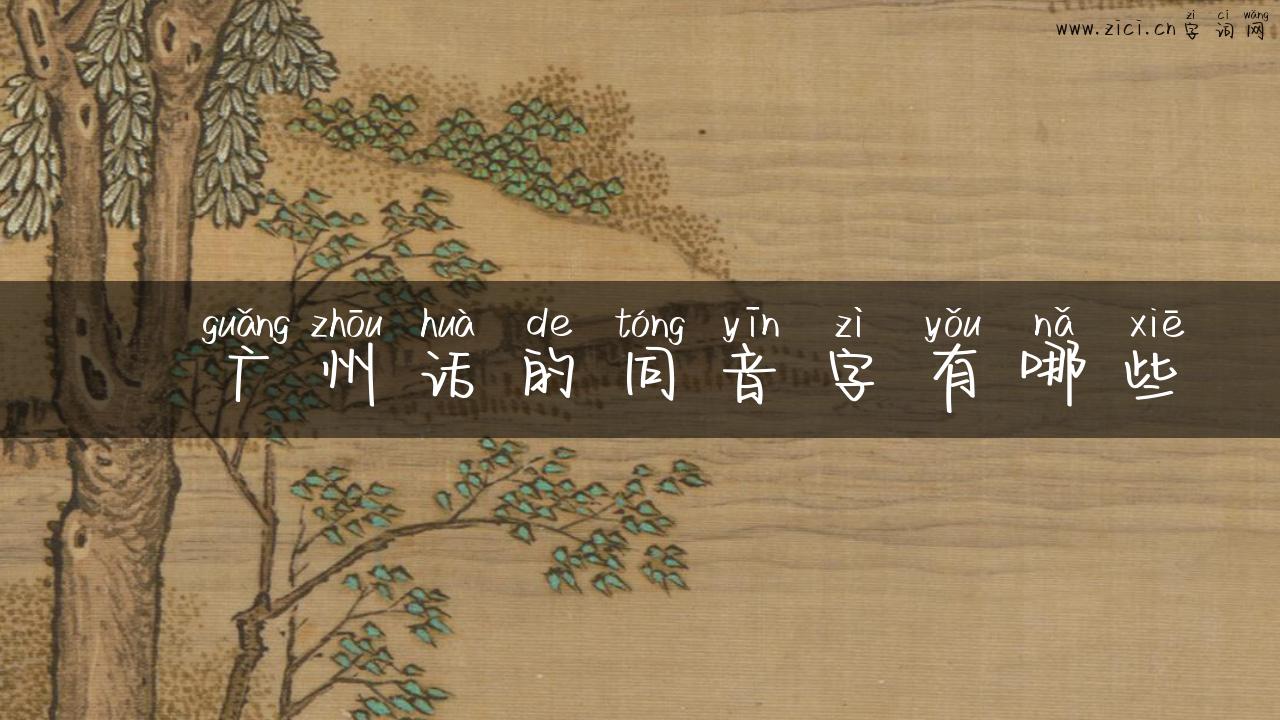 zì cí wǎng
www.zici.cn 字词网
guǎng zhōu huà de tóng yīn zì yǒu nǎ xiē
广州话的同音字有哪些